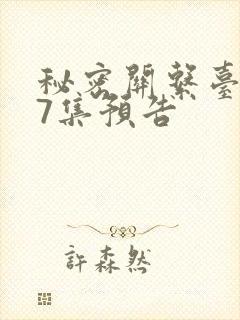 秘密關繫臺
7集預告
許森然